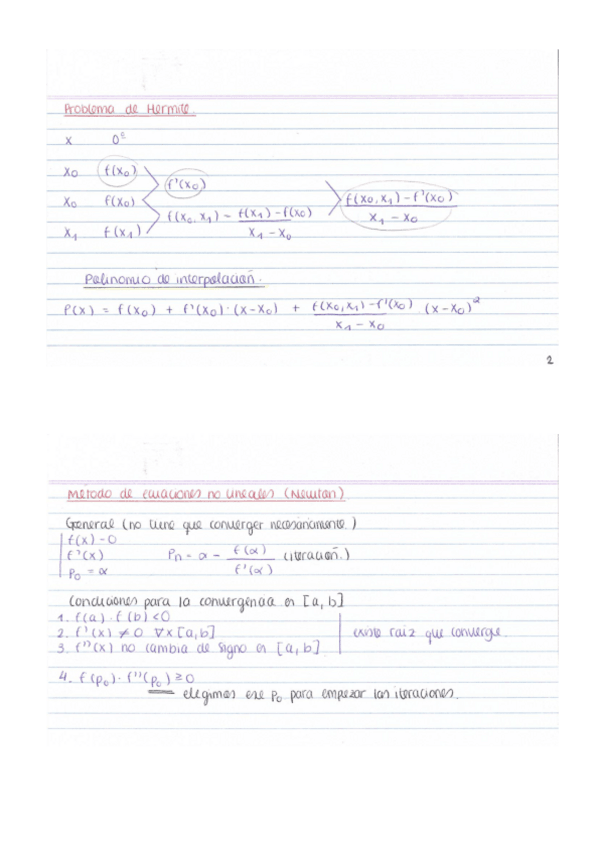 Problema de Hermite
x 0º
x0 f(x0)
f'(x0)
x0 f(x0)
f(x0, x1) - f'(x0) / x1 - x0
f(x0, x1) = f(x1) - f(x0) / x1 - x0
x1 f(x1)
Polinomio de interpolación.
P(x) = f(x0) + f'(x0)·(x-x0) + f(x0,x1)-f'(x0) / x1-x0 (x-x0)²
2
Método de ecuaciones no lineales (Newton)
General (no tiene que converger necesariamente.)
f(x)=0
f'(x) Pn = α - f(α) / f'(α) (iteración.)
P0 = α
Condiciones para la convergencia en [a,b]
1. f(a)·f(b)<0
2. f'(x) ≠ 0 ∀x[a,b] existe raiz que converge.
3. f''(x) no cambia de signo en [a,b]
4. f(p0)·f''(p0) ≥ 0
elegimos ese p0 para empezar las iteraciones.